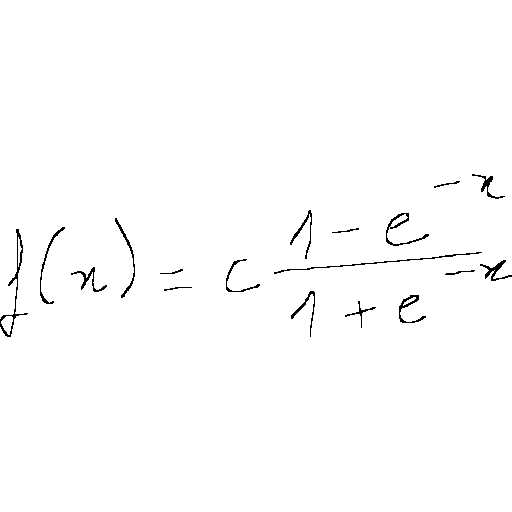 f(x) = c \frac{1 - e^{-x}}{1 + e^{-x}}